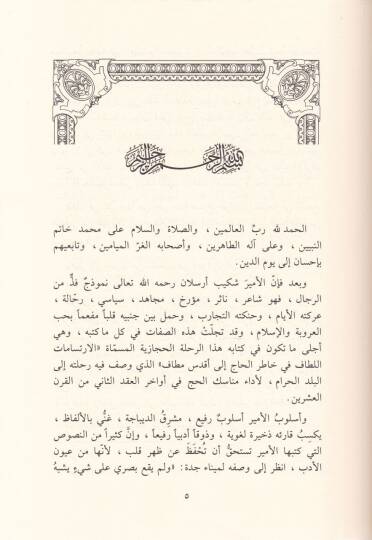 بسم الله الرحمن الرحيم
الحمد لله ربّ العالمين ، والصلاة والسلام على محمد خاتم
النبيين ، وعلى آله الطاهرين ، وأصحابه الغرّ الميامين ، وتابعيهم
بإحسان إلى يوم الدين .
وبعد فإنّ الأميرَ شكيب أرسلان رحمه الله تعالى نموذجٌ فذٌّ من
الرجال ، فهو شاعر ، ناثر ، مؤرخ ، مجاهد ، سياسي ، رحّالة ،
عركته الأيام ، وحنكته التجارب ، وحمل بين جنبيه قلباً مفعماً بحب
العروبة والإسلام ، وقد تجلّتْ هذه الصفات في كل ما كتبه ، وهي
أجلى ما تكون في كتابه هذا الرحلة الحجازية المسمّاة «الارتسامات
اللطاف في خاطر الحاج إلى أقدس مطاف» الذي وصف فيه رحلته إلى
البلد الحرام ، لأداء مناسك الحج في أواخر العقد الثاني من القرن
العشرين .
وأسلوبُ الأمير أسلوبٌ رفيع ، مشرقُ الديباجة ، غنيٌّ بالألفاظ ،
يكسِبُ قارئه ذخيرة لغوية ، وذوقاً أدبياً رفيعاً ، وإنَّ كثيراً من النصوص
التي كتبها الأمير تستحقُّ أن تُحْفَظَ عن ظهر قلب ، لأنّها من عيون
الأدب ، انظر إلى وصفه لميناء جدة : «ولم يقع بصري على شيءٍ يشبهُ
٥